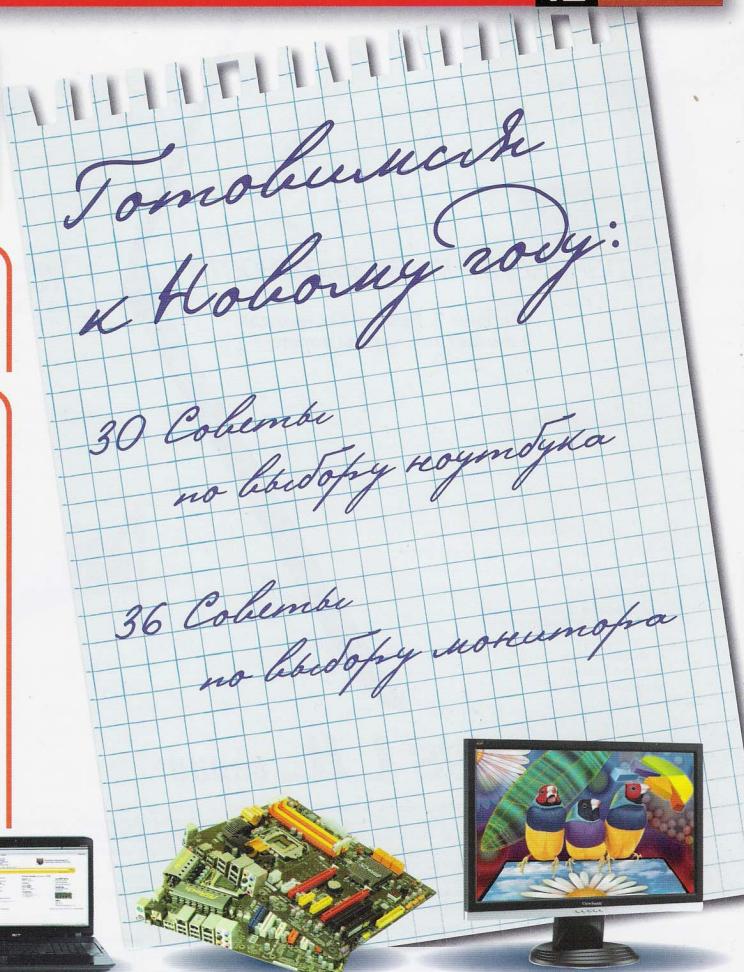 Готовимся
к Новому году:
30 Советы
по выбору ноутбука
36 Советы
по выбору монитора
ViewSonic
acer